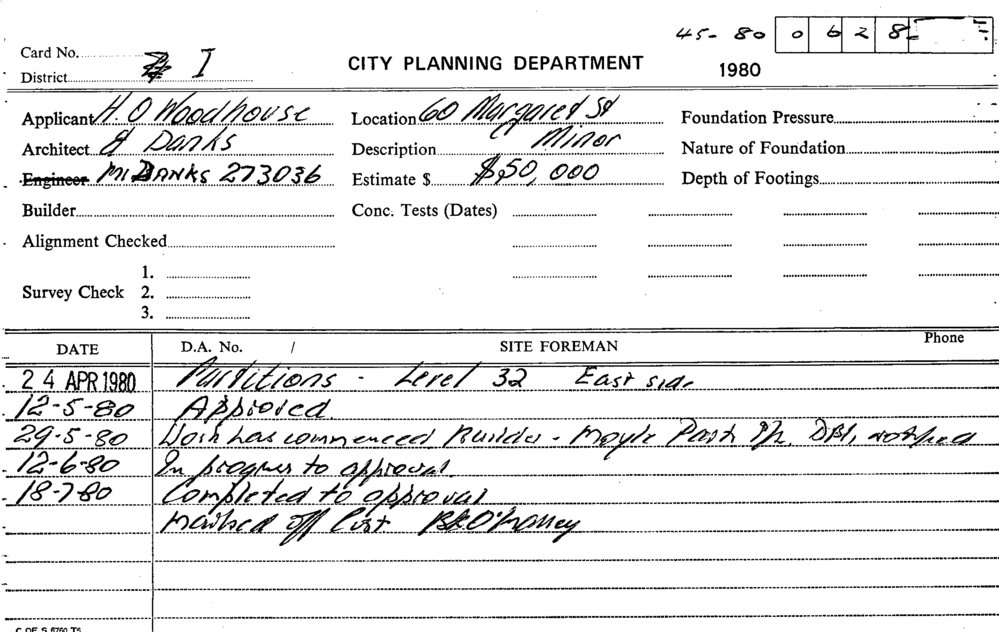 45- 80 0 6 2 8
Card No.
District I
CITY PLANNING DEPARTMENT
1980
Applicant H. O Woodhouse
Location 60 Margaret St
Foundation Pressure
Architect & Danks
Description Minor
Nature of Foundation
Engineer Mr DANKS 273036
Estimate $ $50,000
Depth of Footings
Builder
Conc. Tests (Dates)
Alignment Checked
1.
Survey Check 2.
3.
DATE D.A. No. / SITE FOREMAN Phone
24 APR 1980 Partitions - Level 32 East side
12-5-80 Approved
29-5-80 Work has commenced Builder - Moyle DBI, notified
12-6-80 In progress to approval
18-7-80 Completed to approval
Marked off List
C OF S 6760 T5